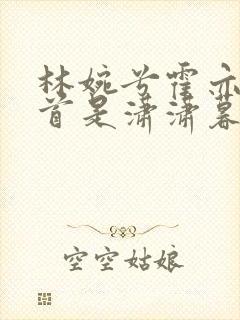 林婉兮霍亦
首是潇潇暮
空空姑娘